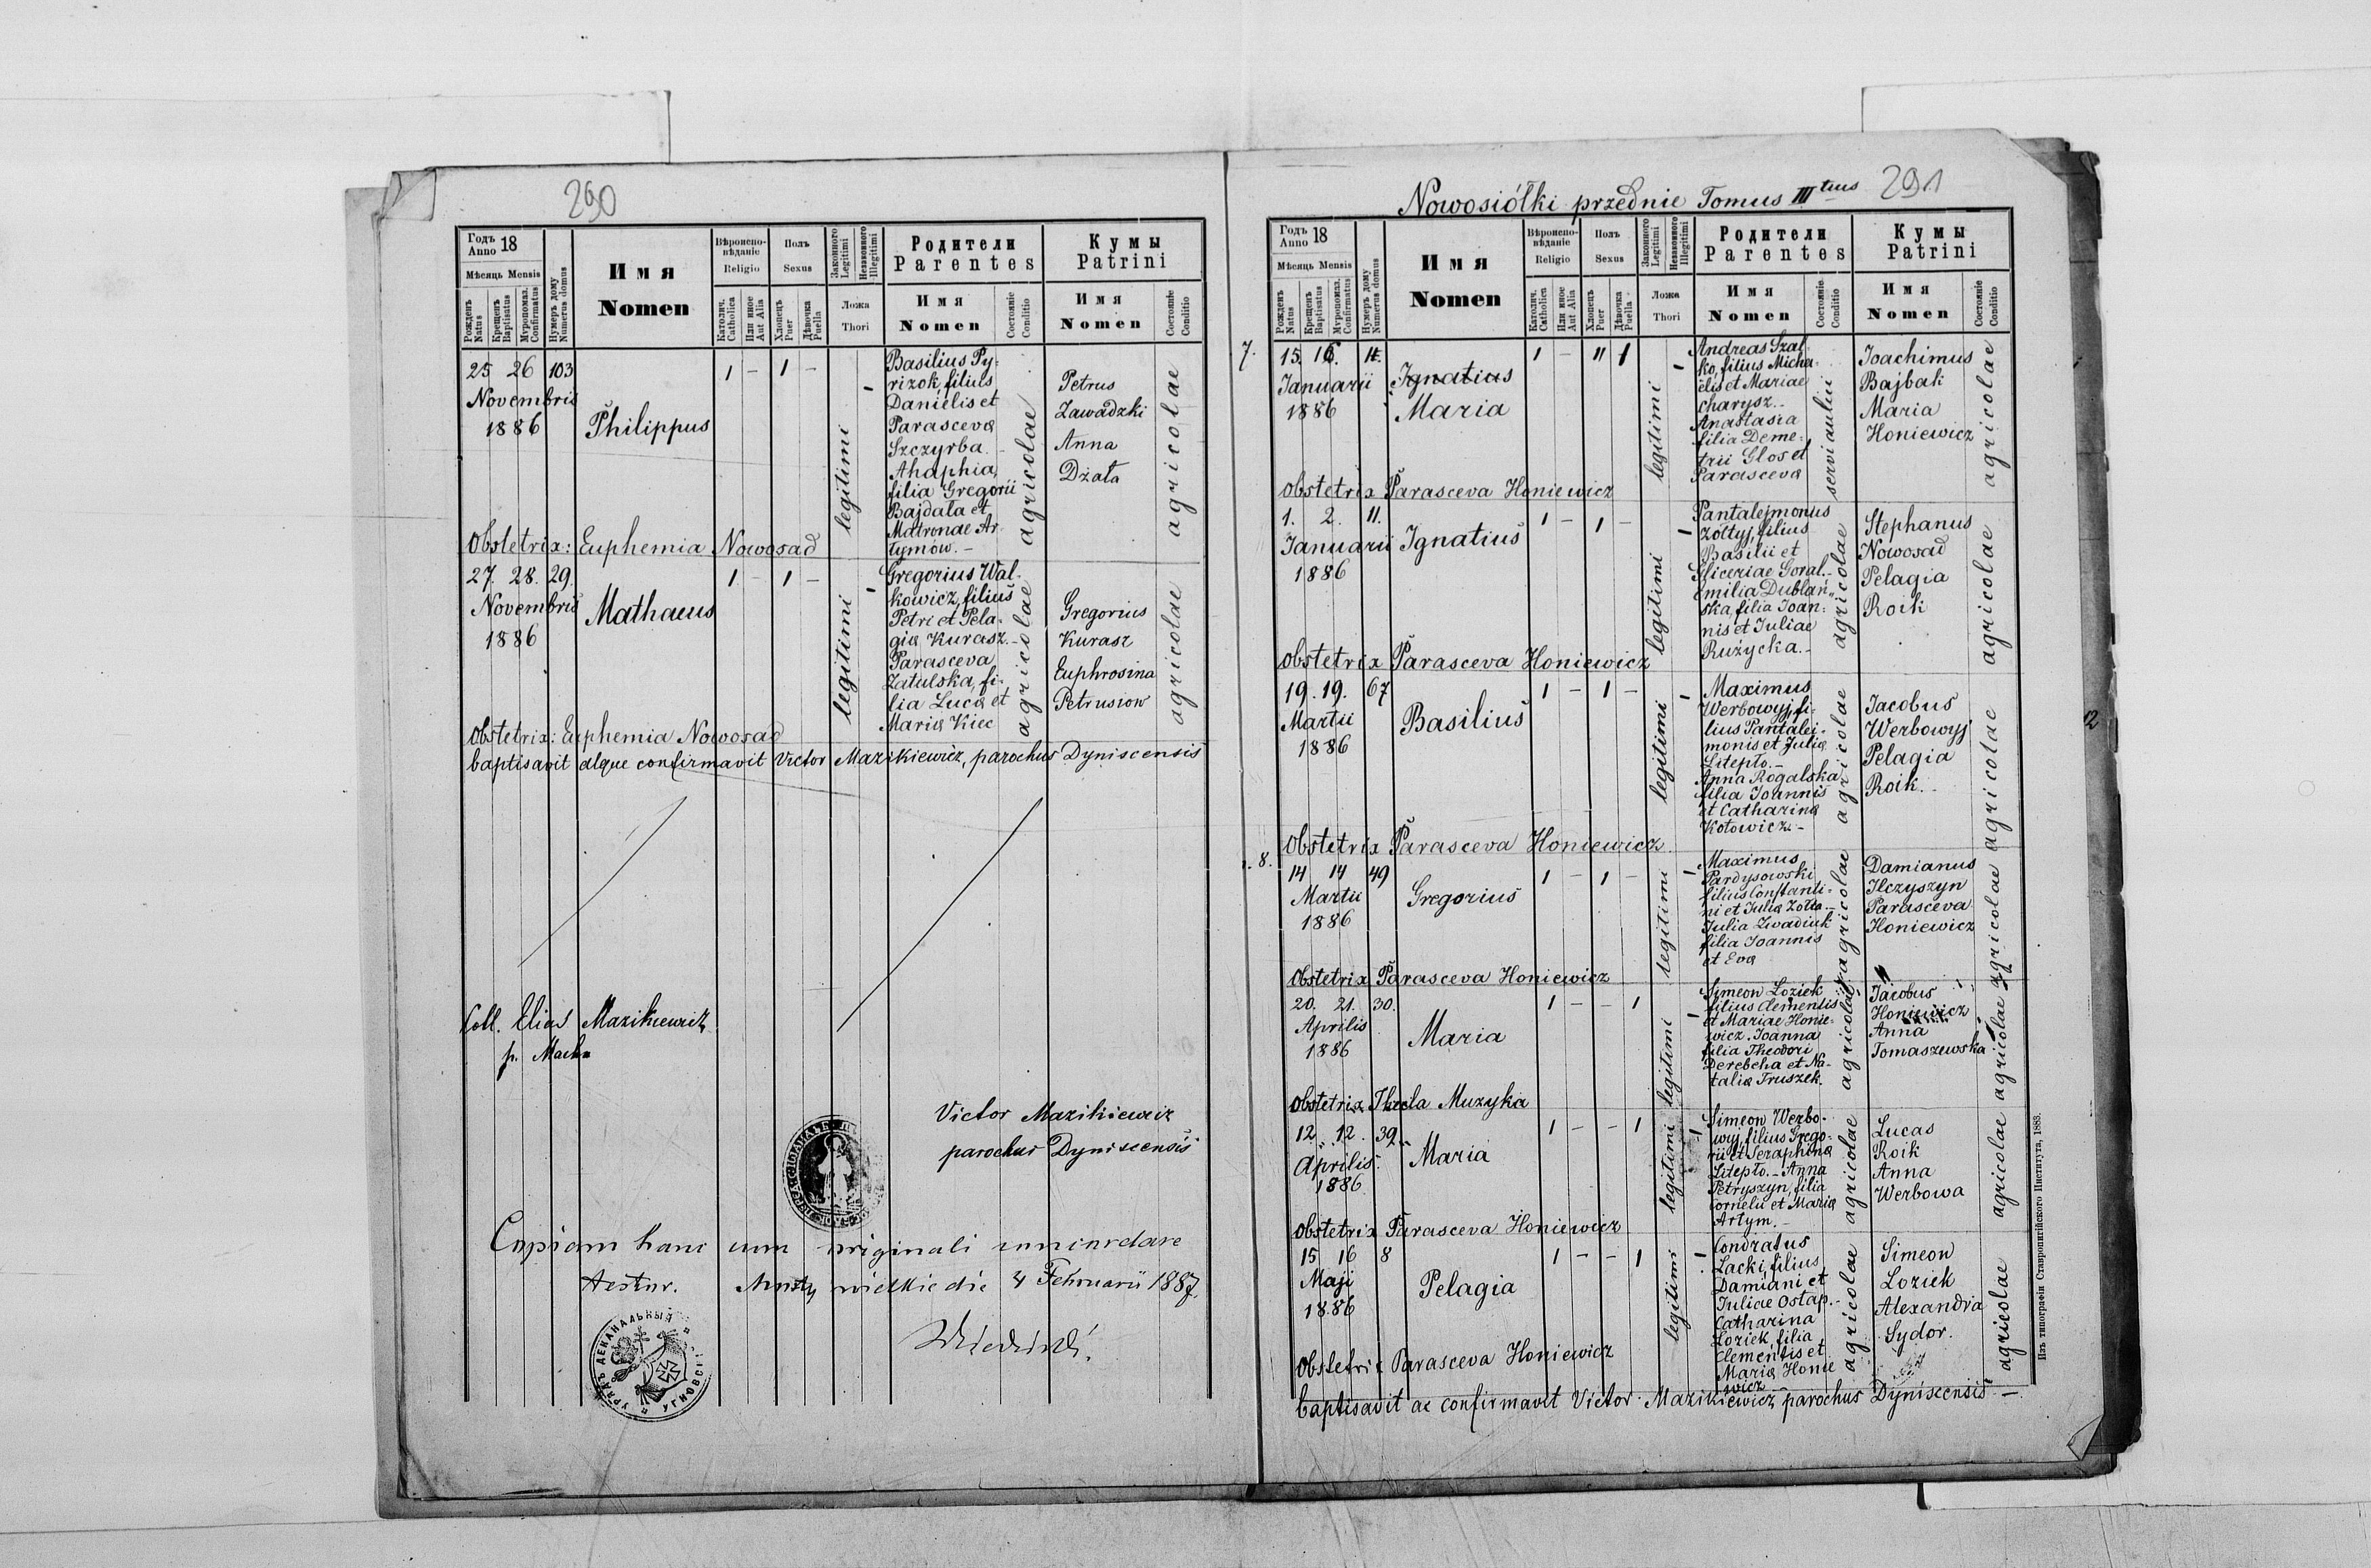 290
Годъ Anno 18
Мѣсяць Mensis
Рожденъ Natus
Крещенъ Baptisatus
Мѵропомаз. Confirmatus
Нумеръ дому Numerus domus
Имя
Nomen
Вѣроисповѣданіе
Religio
Католич. Catholica
Или иное Aut Alia
Полъ
Sexus
Хлопецъ Puer
Дѣвочка Puella
Законного Legitimi
Незаконного Illegitimi
Ложа
Thori
Родители
Parentes
Имя
Nomen
Состояніе Conditio
Кумы
Patrini
Имя
Nomen
Состояніе Conditio
25 26 103
Novembris
1886
Philippus
1 – 1 –
legitimi
Basilius Py-
rizok, filius
Danielis et
Parasceva
Szczyrba. –
Ahaphia,
filia Gregorii
Bajdala et
Matronae Ar-
tymów. –
agricolae
Petrus
Zawadzki
Anna
Dżała
agricolae
Obstetrix: Euphemia Nowosad
27. 28. 29.
Novembris
1886
Mathaeus
1 – 1 –
legitimi
Gregorius Wal-
kowicz, filius
Petri et Pela-
giæ Kurasz. –
Parasceva
Zatulska, fi-
lia Lucæ et
Mariæ Kiec
agricolae
Gregorius
Kurasz
Euphrosina
Petrusiow
agricolae
Obstetrix: Euphemia Nowosad
baptisavit atque confirmavit Victor Mazikiewicz, parochus Dyniscensis
Coll. Elias Mazikiewicz
Victor Mazikiewicz
parochus Dyniscensis
Copiam hanc cum originali concordare
testor.
wielkie die 4 Februarii 1887.
УРЯДЪ ДЕКАНАЛЬНЫЙ УГНОВСКІЙ
Nowosiółki przednie Tomus IIItius
291
Годъ Anno 18
Мѣсяць Mensis
Рожденъ Natus
Крещенъ Baptisatus
Мѵропомаз. Confirmatus
Нумеръ дому Numerus domus
Имя
Nomen
Вѣроисповѣданіе
Religio
Католич. Catholica
Или иное Aut Alia
Полъ
Sexus
Хлопецъ Puer
Дѣвочка Puella
Законного Legitimi
Незаконного Illegitimi
Ложа
Thori
Родители
Parentes
Имя
Nomen
Состояніе Conditio
Кумы
Patrini
Имя
Nomen
Состояніе Conditio
7.
15. 16.
Januarii
1886
Ignatius
Maria
legitimi
Andreas Szal-
ko, filius Micha-
elis et Mariae
charysz. –
Anastasia
filia Deme-
trii Glos et
Parasceva
servi aulici
Joachimus
Bajbak
Maria
Honiewicz
agricolae
Obstetrix Parasceva Honiewicz
1. 2. 11.
Januarii
1886
Ignatius
1 – 1 –
legitimi
Pantalejmonus
Zołtyj, filius
Basilii et
Gliceriae Goral. –
Emilia Dublań-
ska, filia Joan-
nis et Juliae
Rużycka. –
agricolae
Stephanus
Nowosad
Pelagia
Roik
agricolae
Obstetrix Parasceva Honiewicz
19. 19. 67
Martii
1886
Basilius
1 – 1 –
legitimi
Maximus
Werbowyj, fi-
lius Pantalej-
monis et Juliæ
Litepło. –
Anna Rogalska
filia Joannis
et Catharinæ
Kotowicz. –
agricolae
Jacobus
Werbowyj
Pelagia
Roik. –
agricolae
Obstetrix Parasceva Honiewicz
8.
14 14 49
Martii
1886
Gregorius
1 – 1 –
legitimi
Maximus
Pardysowski
filius Constanti-
ni et Juliæ Zołta. –
Julia Zwadiuk
filia Joannis
et Evæ
agricolae
Damianus
Ilczyszyn
Parasceva
Honiewicz
agricolae
Obstetrix Parasceva Honiewicz
20. 21. 30.
Aprilis
1886
Maria
1 – – 1
legitimi
Simeon Loziek
filius Clementis
et Mariae Honie-
wicz. Joanna
filia Theodori
Derebcha et Na-
taliæ Truszek.
agricolae
Jacobus
Honiewicz
Anna
Tomaszewska
agricolae
Obstetrix Thecla Muzyka
12. 12. 39.
Aprilis
1886
Maria
1 – – 1
legitimi
Simeon Werbo-
wyj, filius Grego-
rii et Seraphinæ
Litepło. – Anna
Petryszyn, filia
Cornelii et Mariæ
Artym. –
agricolae
Lucas
Roik
Anna
Werbowa
agricolae
Obstetrix Parasceva Honiewicz
15 16 8
Maji
1886
Pelagia
1 – – 1
legitimi
Condratus
Lacki, filius
Damiani et
Juliae Ostap. –
Catharina
Loziek filia
Clementis et
Mariæ Honie
wicz
agricolae
Simeon
Loziek
Alexandra
Sydor.
agricolae
Obstetrix Parasceva Honiewicz
baptisavit ac confirmavit Victor Mazikiewicz, parochus Dyniscensis –
Изъ типографіи Ставропигійского Института, 1883.
2